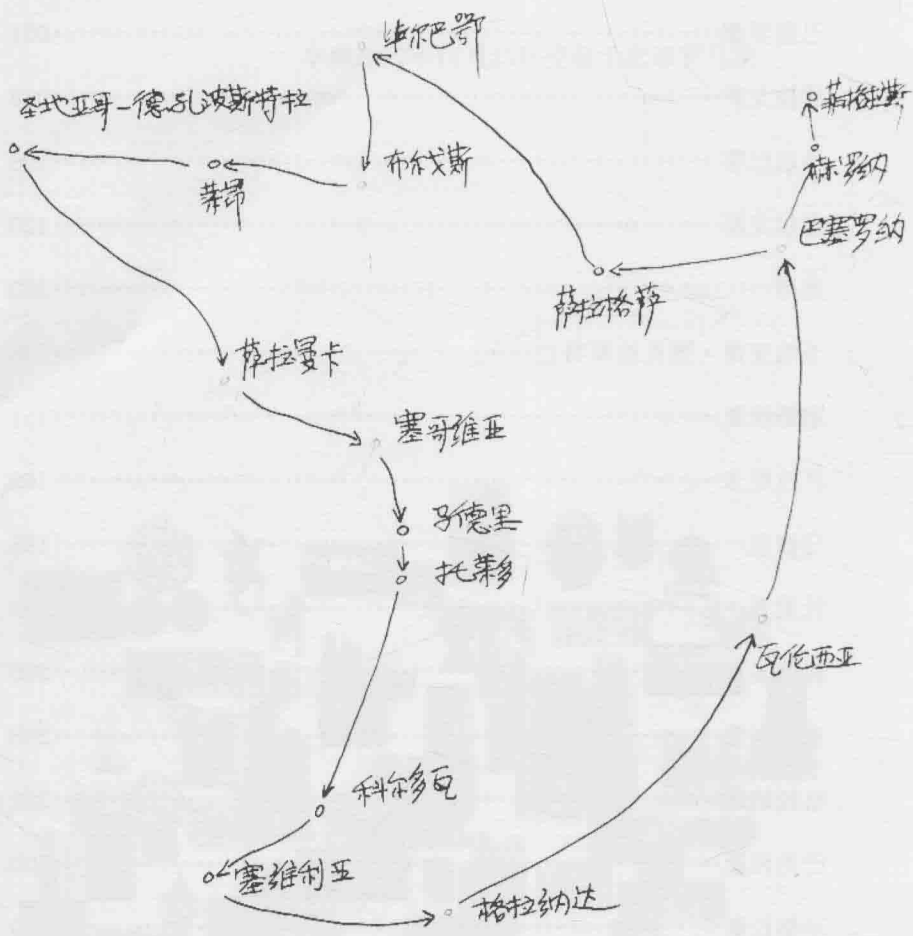 毕尔巴鄂
圣地亚哥-德孔波斯特拉
菲格拉斯
布尔戈斯
莱昂
赫罗纳
巴塞罗纳
萨拉格萨
萨拉曼卡
塞哥维亚
马德里
托莱多
瓦伦西亚
科尔多瓦
塞维利亚
格拉纳达